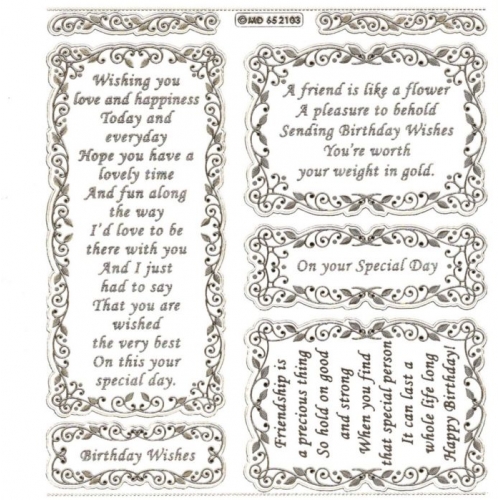 ©MD 652103
Wishing you
love and happiness
Today and
everyday
Hope you have a
lovely time
And fun along
the way
I'd love to be
there with you
And I just
had to say
That you are
wished
the very best
On this your
special day.
Birthday Wishes
A friend is like a flower
A pleasure to behold
Sending Birthday Wishes
You're worth
your weight in gold.
On your Special Day
Friendship is
a precious thing
So hold on good
and strong
When you find
that special person
It can last a
whole life long
Happy Birthday!